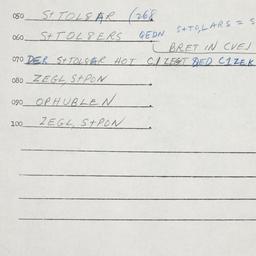 050 S+TOLSER (268
060 S+TOL8ERS GEDN S+TOLARS = S
BRET IN CVEJ
070 DER S+TOLSER HOT C1ZEGT BED C1ZEK
080 ZEGL, S+PON
090 OPHUBLEN
100 ZEGL, S+PON